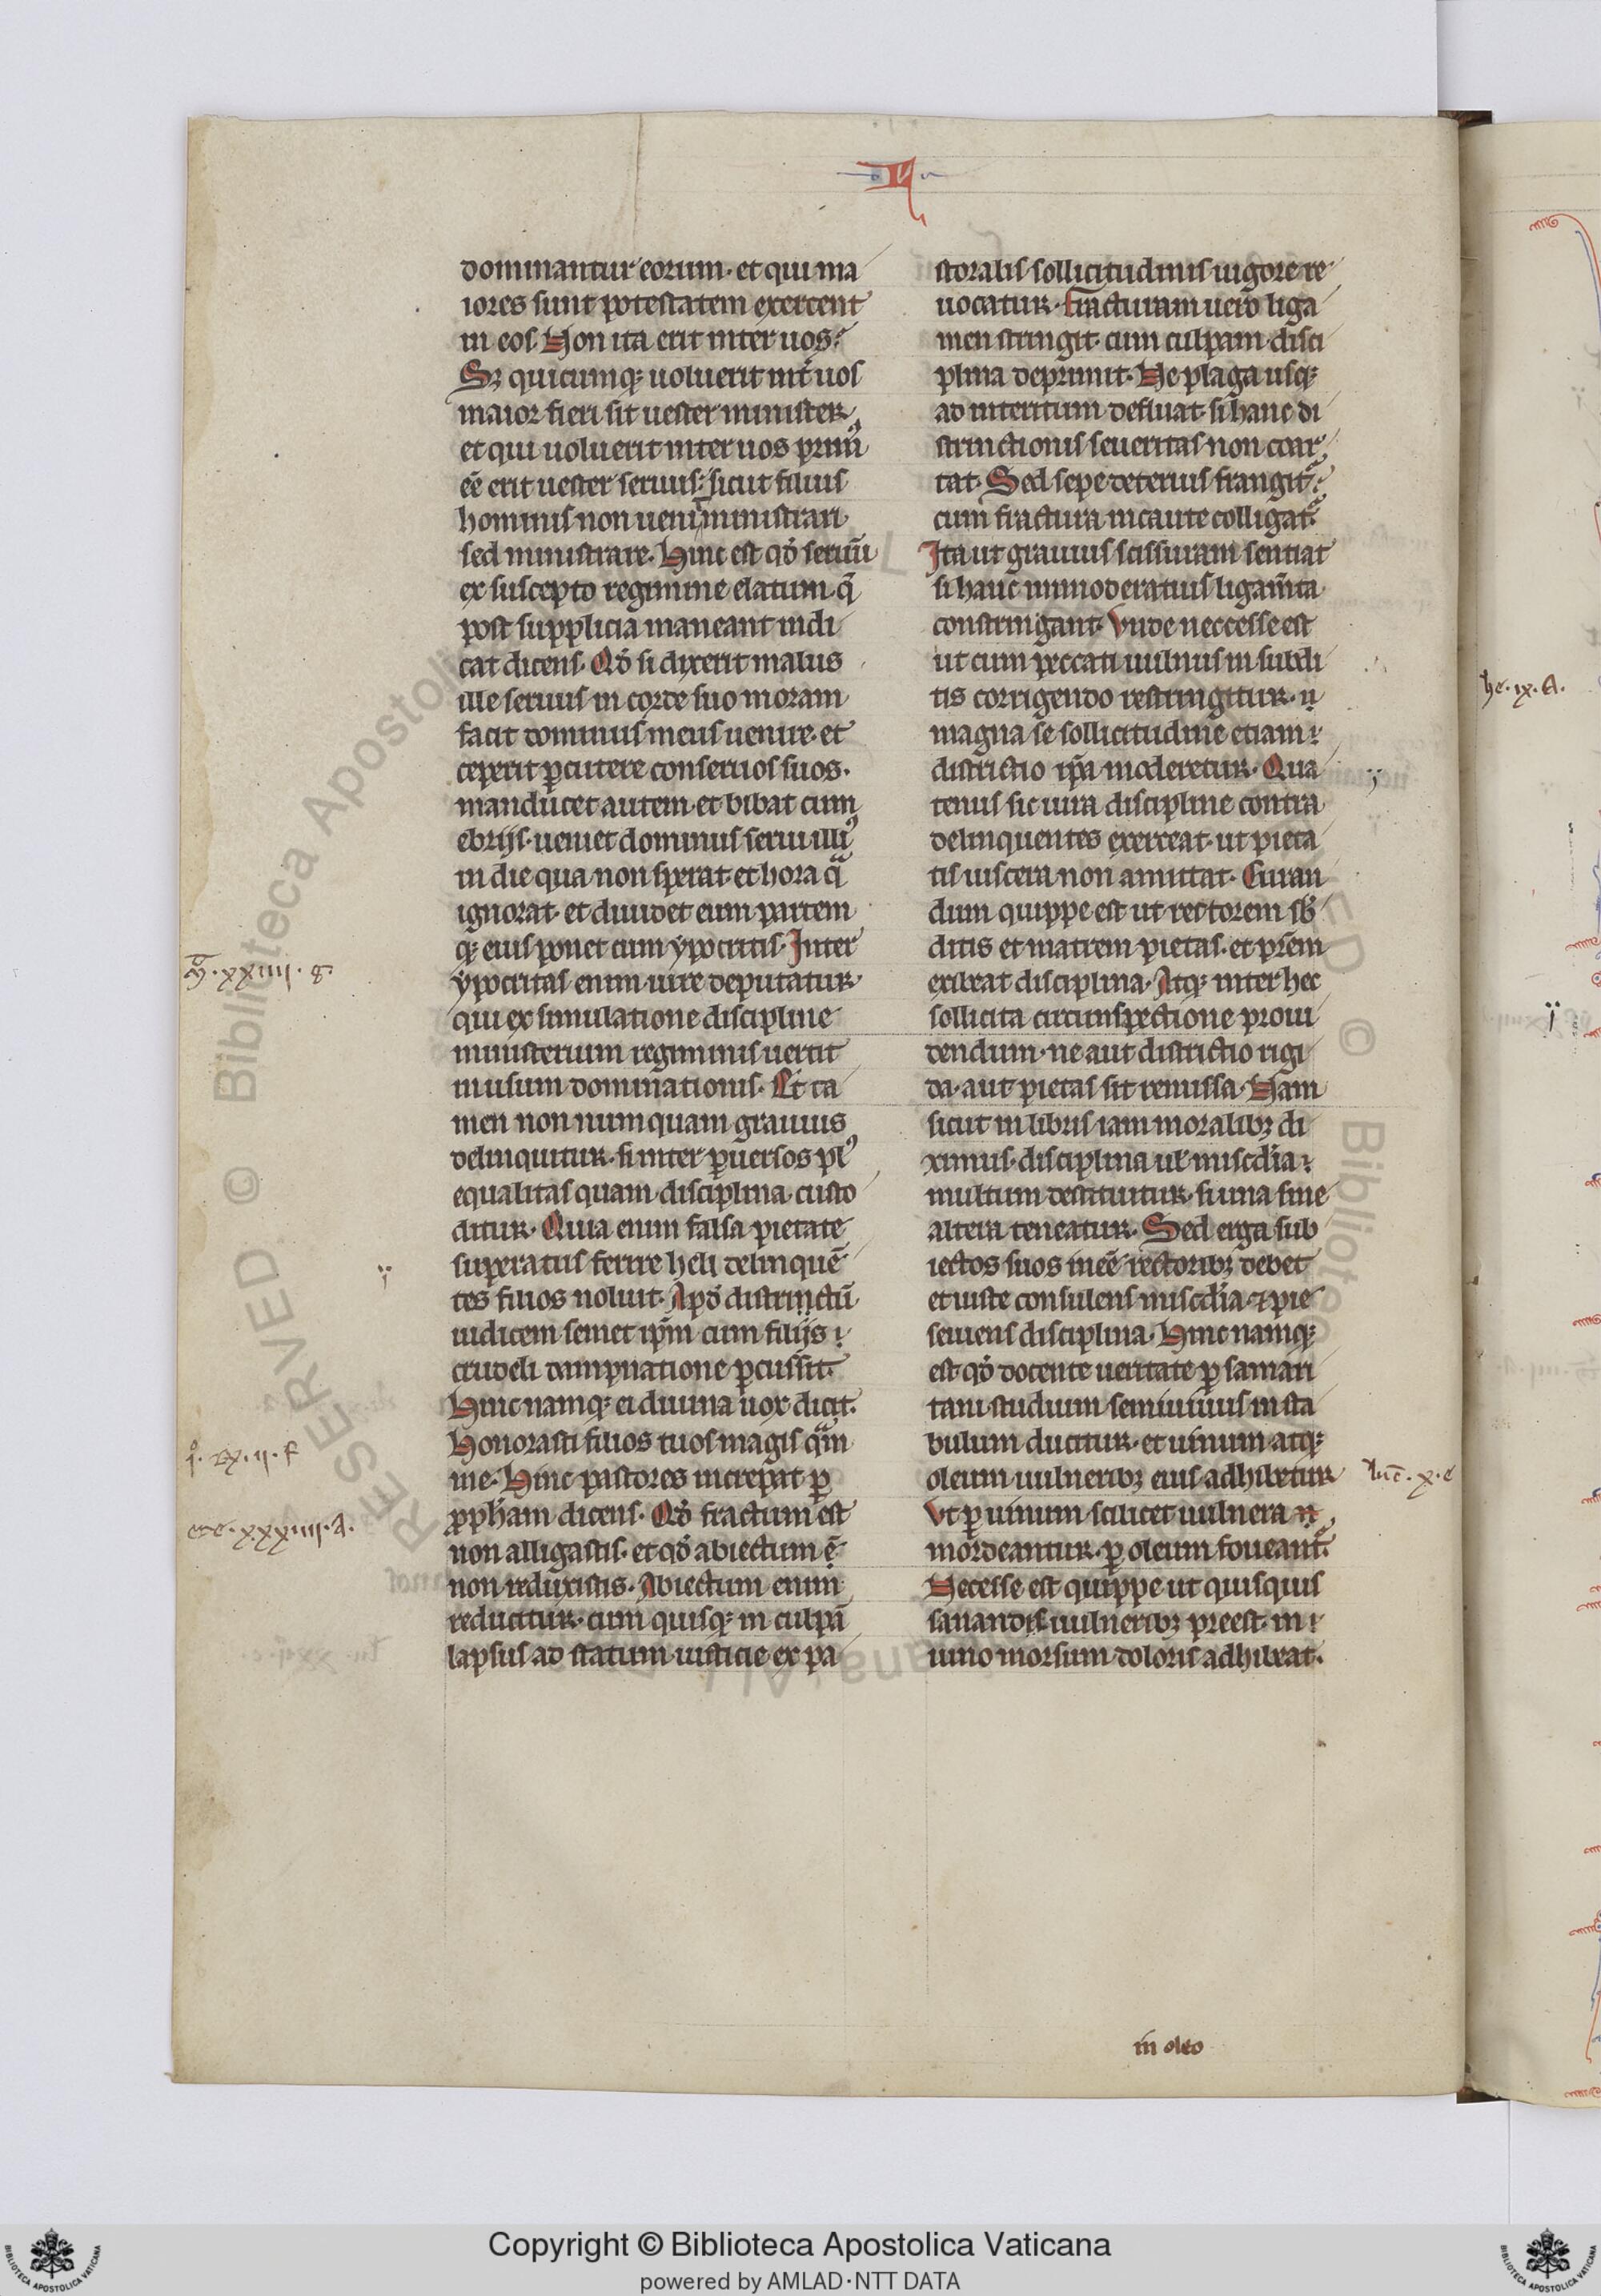 II
dominantur eorum· et qui ma
iores sunt potestatem exercent
in eos· Non ita erit inter uos·
Sꝫ quicumqꝫ uoluerit int̄ uos
maior fieri sit uester minister
et qui uoluerit inter uos prim᷒
eē erit uester seruus· sicut filius
hominis non uenit ministrari
sed ministrare· Hinc est qđ seruū
ex suscepto regimine elatum· q̄
post supplicia maneant indi
cat dicens· Qđ si dixerit malus
ille seruus in corde suo moram
facit dominus meus uenire· et
ceperit ꝑcutere conseruos suos·
manducet autem et bibat cum
ebrijs· ueniet dominus serui illi᷒
in die qua non sperat et hora qᷓ
ignorat· et diuidet eum partem
qꝫ eius ponet cum ypocritis· Inter
ypocritas enim iure deputatur·
qui ex simulatione discipline
ministerium regiminis uertit
in usum dominationis· Et ta
men non numquam grauius
delinquitur· si inter ꝑuersos pl᷒
equalitas quam disciplina custo
ditur· Quia enim falsa pietate
superatus ferire heli delinquē
tes filios noluit· Apđ districtū
iudicem semet ip̄m cum filijs
crudeli dampnatione ꝑcussit·
Hinc namqꝫ ei diuina uox dicit·
Honorasti filios tuos magis qᷓm
me· Hinc pastores increpat ꝑ
ꝓph̄am dicens· Qđ fractum est
non alligastis· et qđ abiectum ē
non reduxistis· Abiectum enim
reducitur· cum quisqꝫ in culpā
lapsus ad statum iusticie ex pa
storalis sollicitudinis uigore re
uocatur· Fracturam uero liga
men stringit· cum culpam disci
plina deprimit· Ne plaga usqꝫ
ad interitum defluat· si hanc di
strinctionis seueritas non coar
tat· Sed sepe deterius frangit᷑·
cum fractura incaute colligat᷑·
Ita ut grauius scissuram sentiat
si hanc immoderatius ligam̄ta
constringant· Vnde neccesse est
ut cum peccati uulnus in subdi
tis corrigendo restringitur· ī
magna se sollicitudine etiam
districtio ip̄a moderetur· Qua
tenus sic iura discipline contra
delinquentes exerceat· ut pieta
tis uiscera non amittat· Curan
dum quippe est ut rectorem sb̄
ditis et matrem pietas· et pr̄em
exibeat disciplina· Atqꝫ inter hec
sollicita circunspectione proui
dendum· ne aut districtio rigi
da· aut pietas sit remissa· Nam
sicut in libris iam moralibꝫ di
ximus· disciplina ul̄ miscđia
multum destituitur· si una sine
altera teneatur· Sed erga sub
iectos suos inēe rectoribꝫ debet
et iuste consulens miscđia· ⁊ pie
seuiens disciplina· Hinc namqꝫ
est qđ docente ueritate ꝑ samari
tani studium semiuiuus in sta
bulum ducitur· et uinum atqꝫ
oleum uulneribꝫ eius adhibetur
Vt ꝑ uinum scilicet uulnera
mordeantur· ꝑ oleum foueant᷑·
Necesse est quippe ut quisquis
sanandis uulneribꝫ preest· in
uino morsum doloris adhibeat·
in oleo
·xxiiii· g·
ere·xxxiiii·A·
luc̄·x·e
he·ix·A·
Copyright © Biblioteca Apostolica Vaticana
powered by AMLAD·NTT DATA